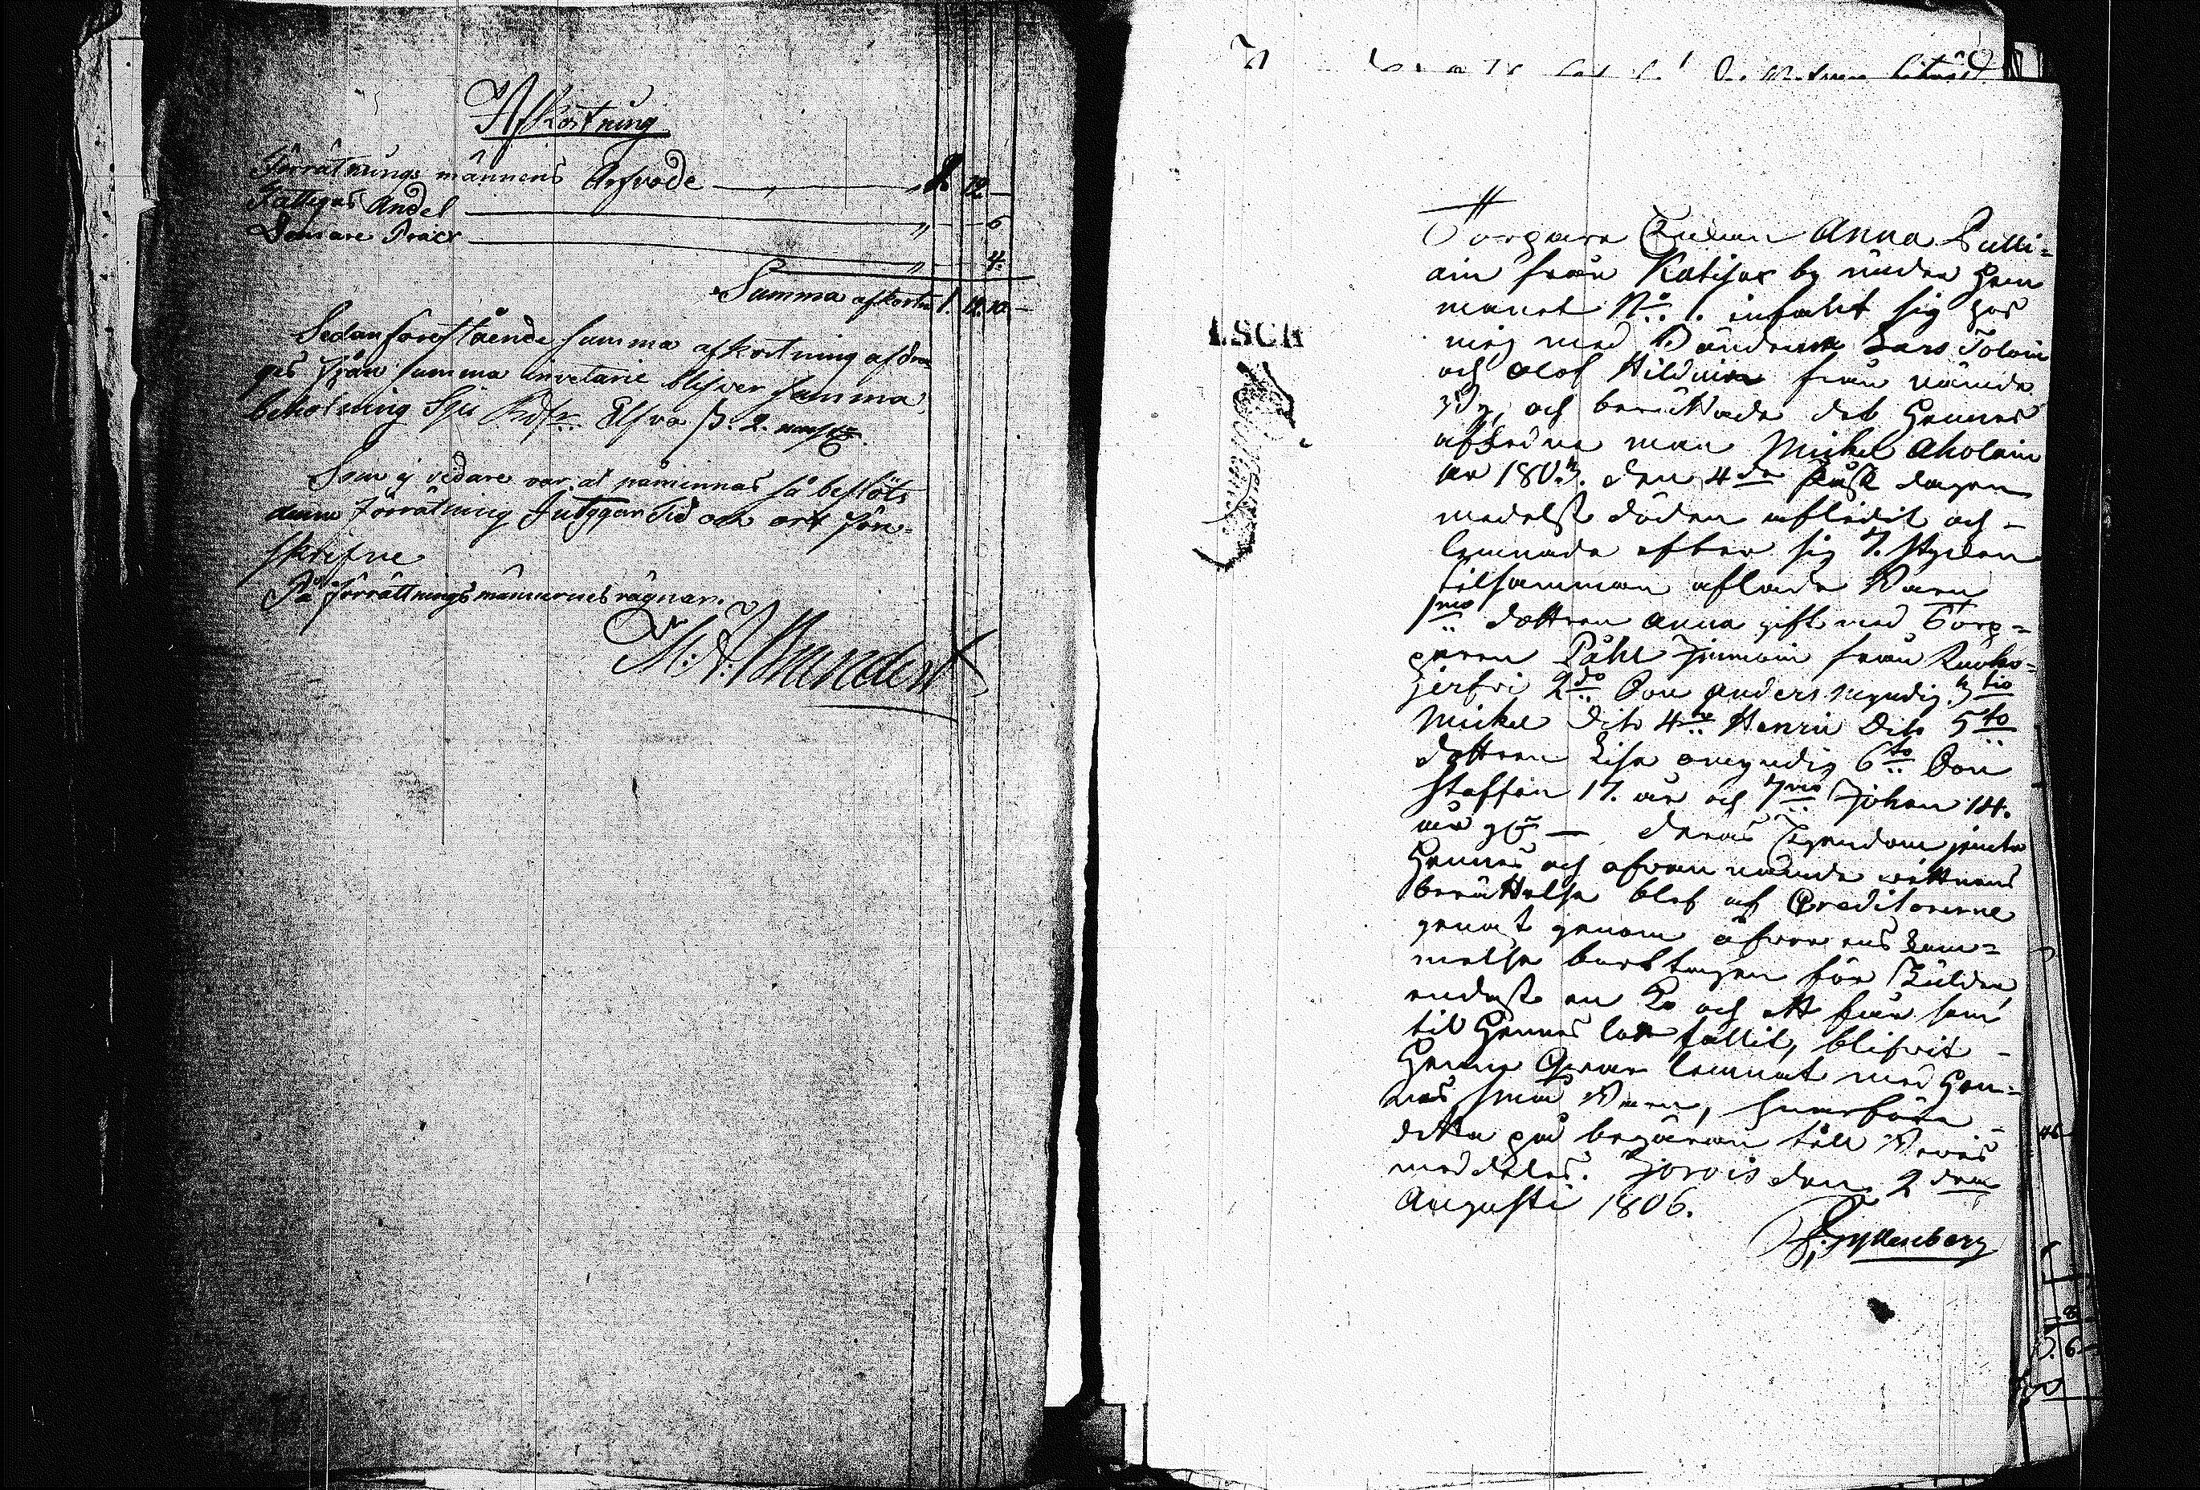 Afkortning
Förrätnings männens Arfvode — „ — „ 12 —
Fattigas Andel — „ — 6
Summa afkortn 1. 12. 10. —
Sedan förestående summa afkortning afdra-
ges från summa inventarie blifver summa
behollning Sju Rdr Elfva ß. 2.
Som ej vidare var at påminnas så beslöts
denna Förrätning Intygar Tid och ort för-
skrifne
På förrättningsmännernes vägnar.
LSCH
Torpare Enkan Anna Pulli-
ain från Kotisar by under Hem
manet No 1. infant sig hos
mig med Bönderne Lars Tolain
och Olof Hildain från nämde
By, och berättade det Hennes
aflidne man Mickel Aholain
år 180 den 4de Påsk dagen
medelst döden aflidit och –
lemnade efter sig 7. stycken
tilsamman aflade Barn
1mo dottren Anna gift med Torp-
paren Påhl from
jerfvi 2do Son Anders myndig 3tio
Mickel Dito 4to Henric Dito 5to
dottren Lisa omyndig 6to Son
Staffan 17. år och 7mo Johan 14.
år g — deras Egendom jemte
Hennes och ofvan nämde wittnens
berättelse blef af Creditorerne
genast genom öfverens kom-
melse borttagen för Skulden
endast en Ko och ett får som
til Hennes lott fallit, blifvit –
Henne Qvar lemnat med Hen-
nes små Barn, hvarföre
detta på begäran till Bevis
meddeles. Jorois den 2dra
Augusti 1806.
Gyllenberg